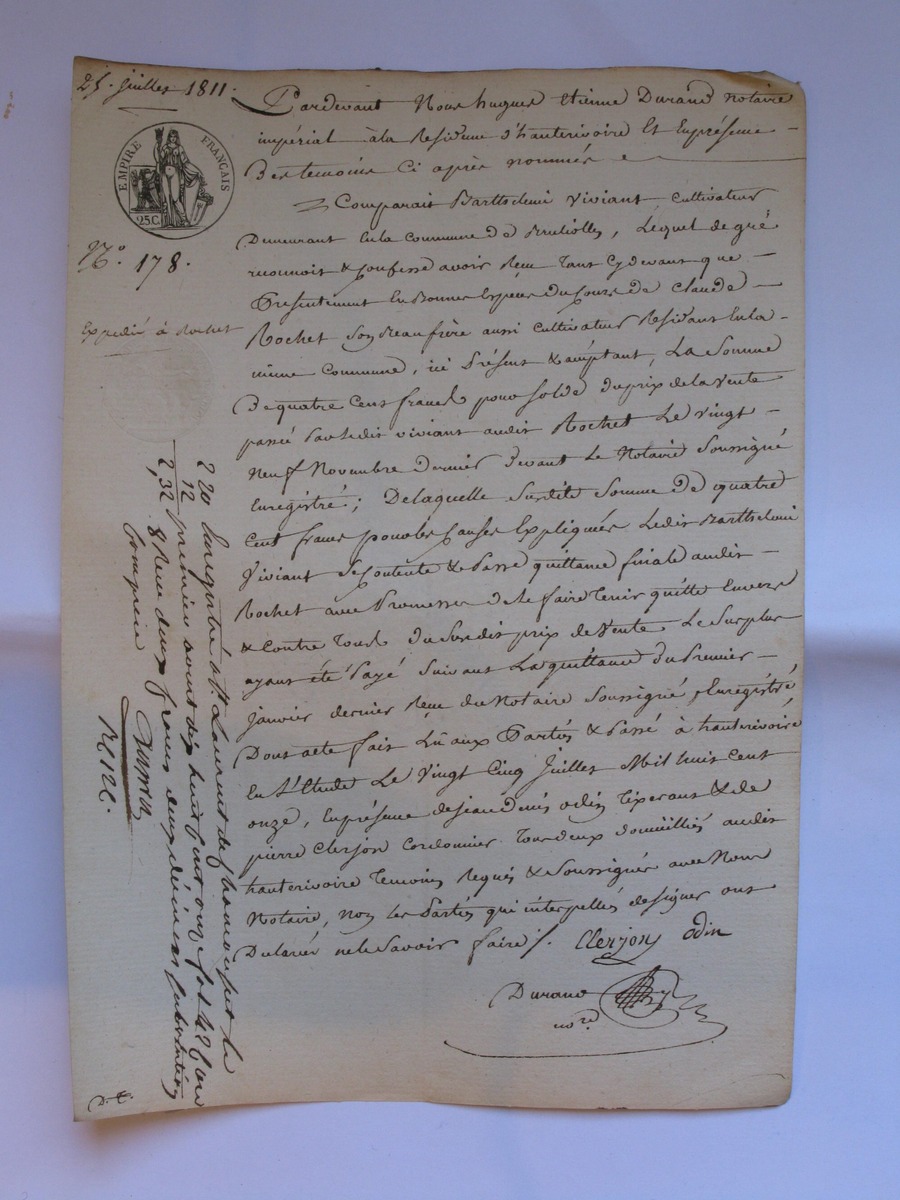 25. juillet 1811.
EMPIRE FRANÇAIS
25.C.
N.º 178.
Expédié à Rochet
Pardevant Nous hugues Etienne Durand notaire
impérial à la Residence d'hauterivoire Et Enprésence
Des temoins Ci après nommés
Comparait Barthelemi Viviant cultivateur
Demeurant Enla Commune de Brulliolles, Lequel de gré
reconnoit & Confesse avoir Reçu tant Cydevant que
Presentement En Bonnes Espèces Du Cours De Claude
Rochet Son Beaufrère aussi Cultivateur Residant Enla
même Commune, ici Présent & acceptant, La Somme
De quatre Cent francs pour Solde duprix dela Vente
passée Par Ledit viviant audit Rochet Le vingt
Neuf Novembre Dernier Devant Le Notaire Soussigné
Enregistré; Delaquelle Susdite Somme De quatre
Cent francs pour les Causes Expliquées Ledit Barthelemi
Viviant Se Contente & Passe quittance finale audit
Rochet avec Promesse de le faire tenir quitte Envers
& Contre Tous Du Susdit prix de Vente Le Surplus
ayant été Payé Suivant La quittance Du Premier
Janvier dernier Reçue Du Notaire Soussigné Enregistré
Dont acte fait Lu aux Parties & Passé à hauterivoire
En L'Etude Le Vingt Cinq Juillet Mil huit Cent
onze, Enprésence de jean denis odin tixerant & de
pierre Clerjon Cordonnier Tous deux domiciliés audit
hauterivoire Temoins Requis & Soussignés avec Nous
Notaire, non les Parties qui interpellés designer ont
Declaré ne le Savoir faire /.
Clerjon odin
Durand
no.re
2 20
12
2,32
Enregistré à St. Laurent de Chamousset le
premier aout dix huit cent onze fol. 48
Reçu deux francs deux décimes Subvention
Comprise
D. E.